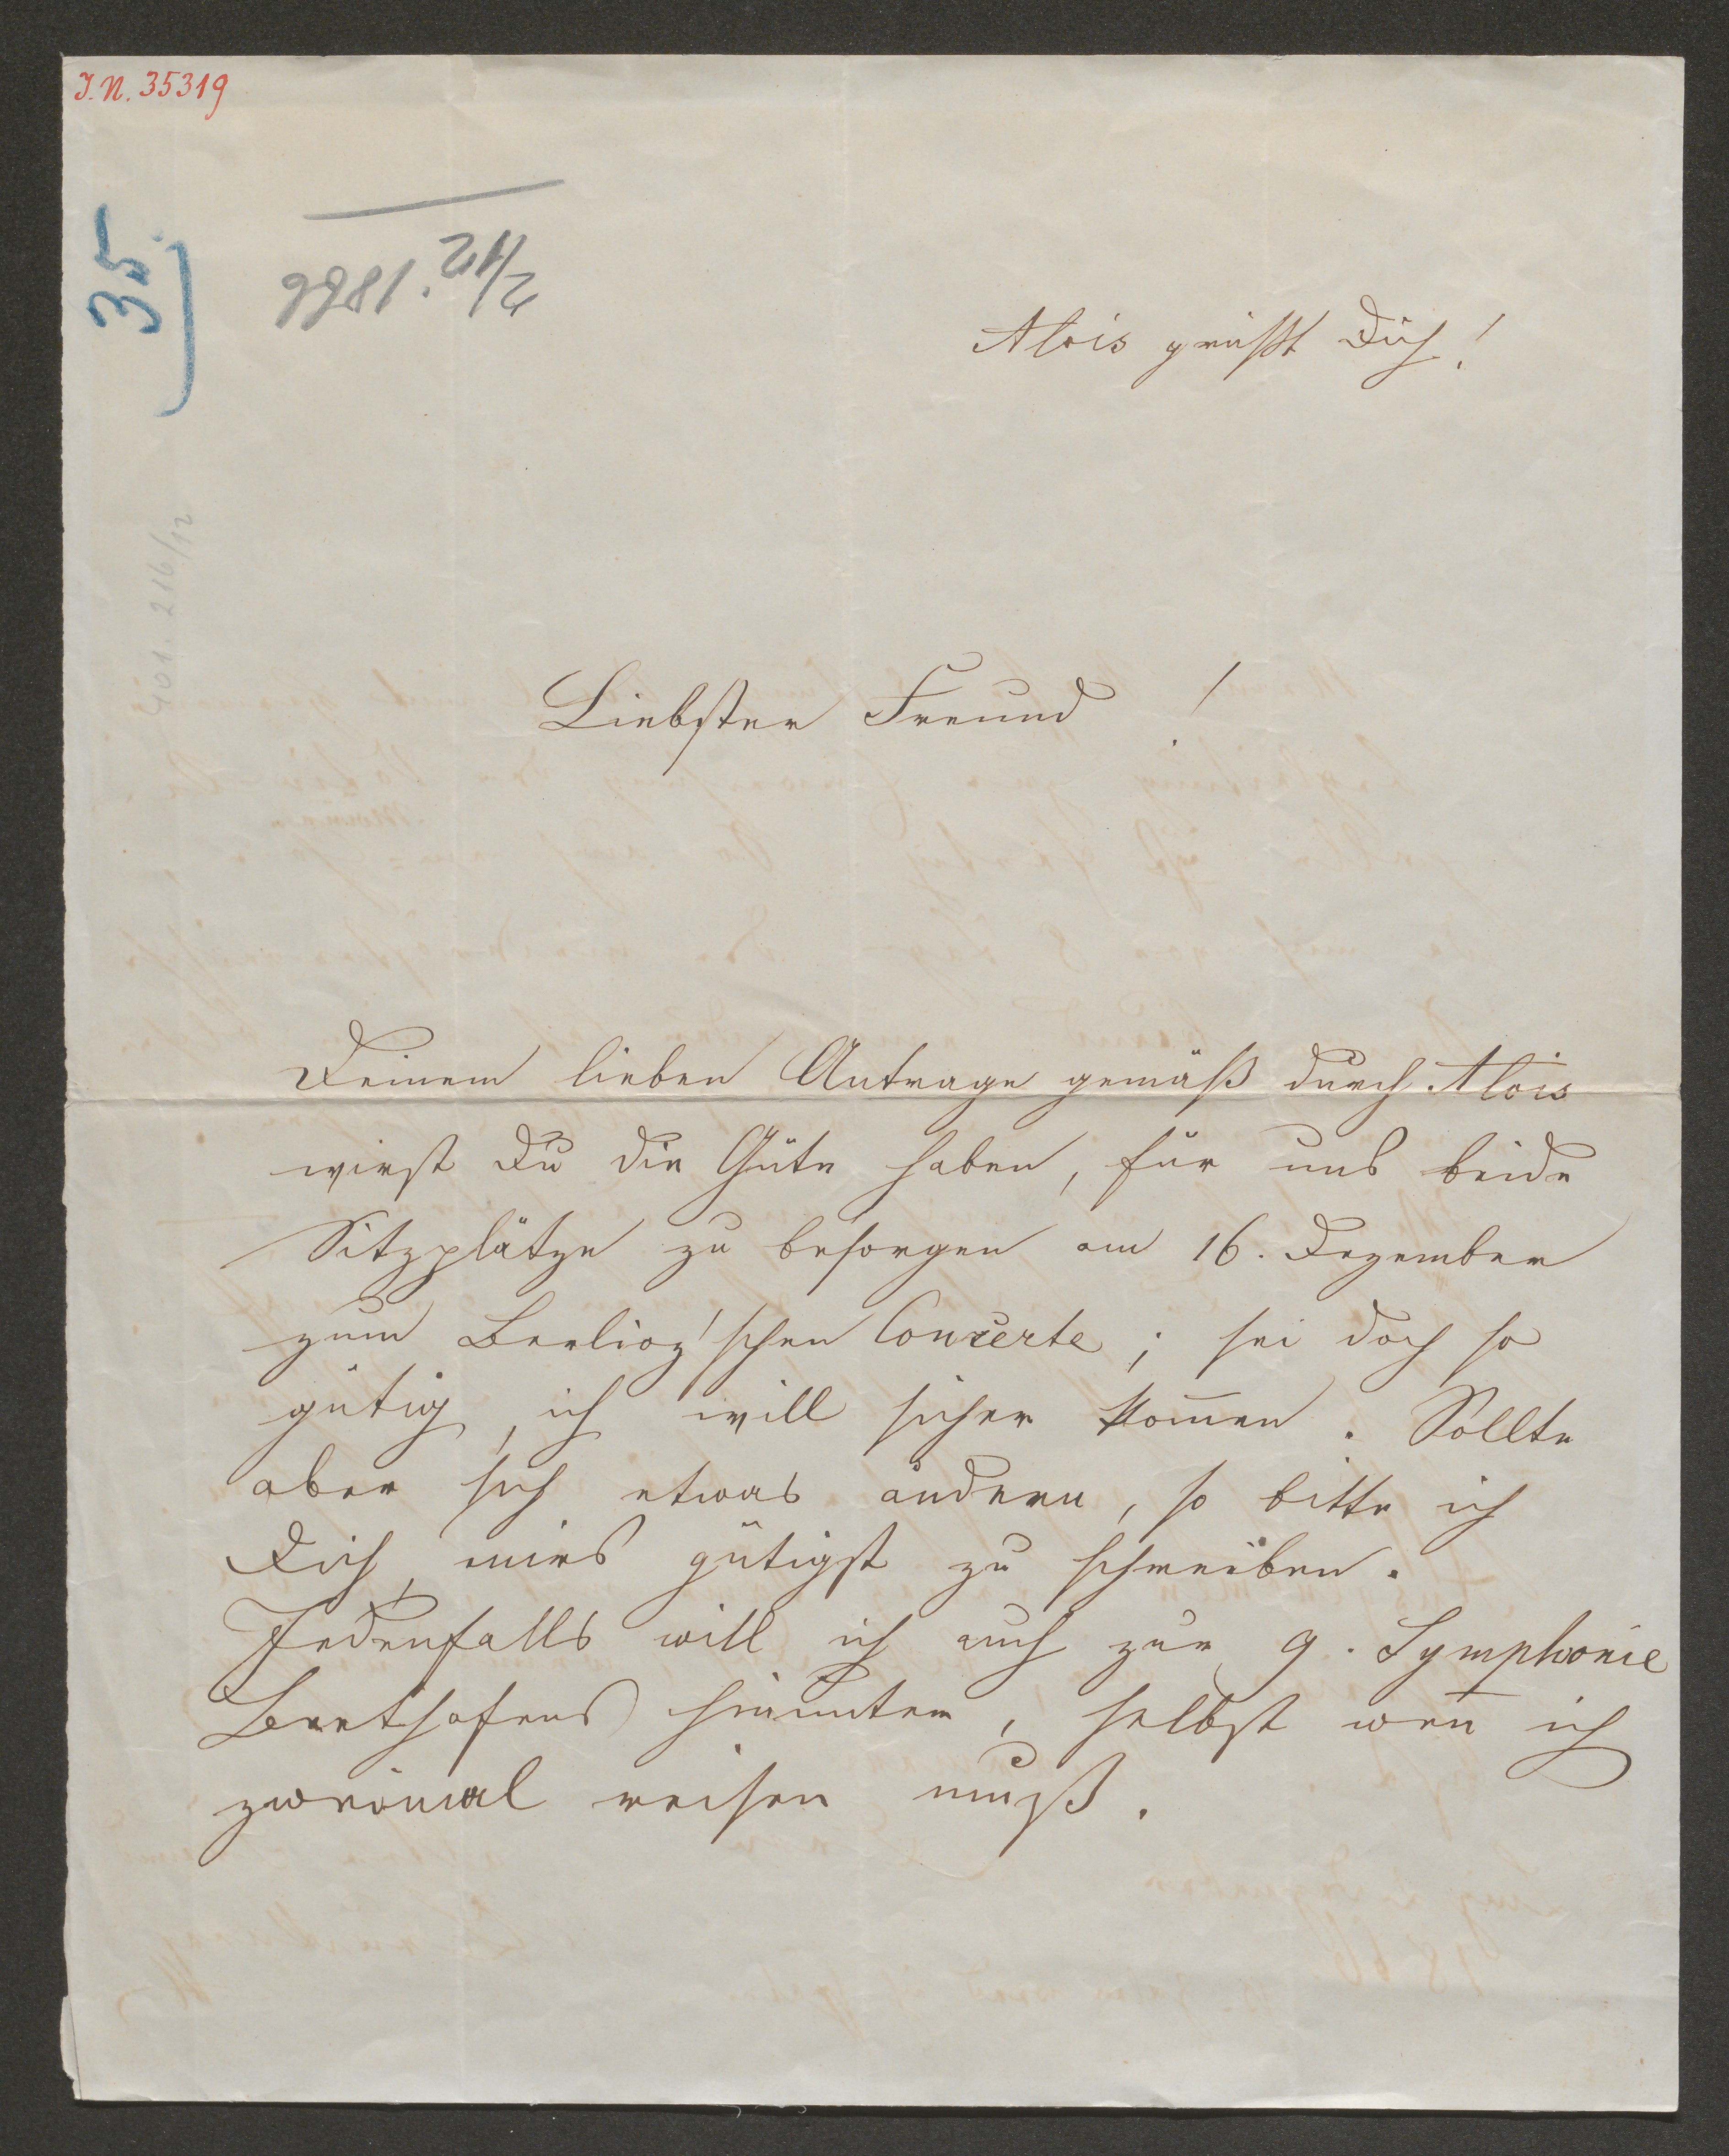 I.N. 35319
35.
2/12. 1866
401. 216/12
Alois grüßt Dich!
Liebster Freund!
Deinem lieben Antrage gemäß durch Alois
wirst Du die Güte haben, für uns beide
Sitzplätze zu besorgen am 16. Dezember
zum Berlioz'schen Concerte; sei doch so
gütig, ich will sicher kom̅en. Sollte
aber sich etwas ändern, so bitte ich
Dich, mirs gütigst zu schreiben.
Jedenfalls will ich auch zur 9. Symphonie
Beethofens hinunter, selbst wen̅ ich
zweimal reisen muß.